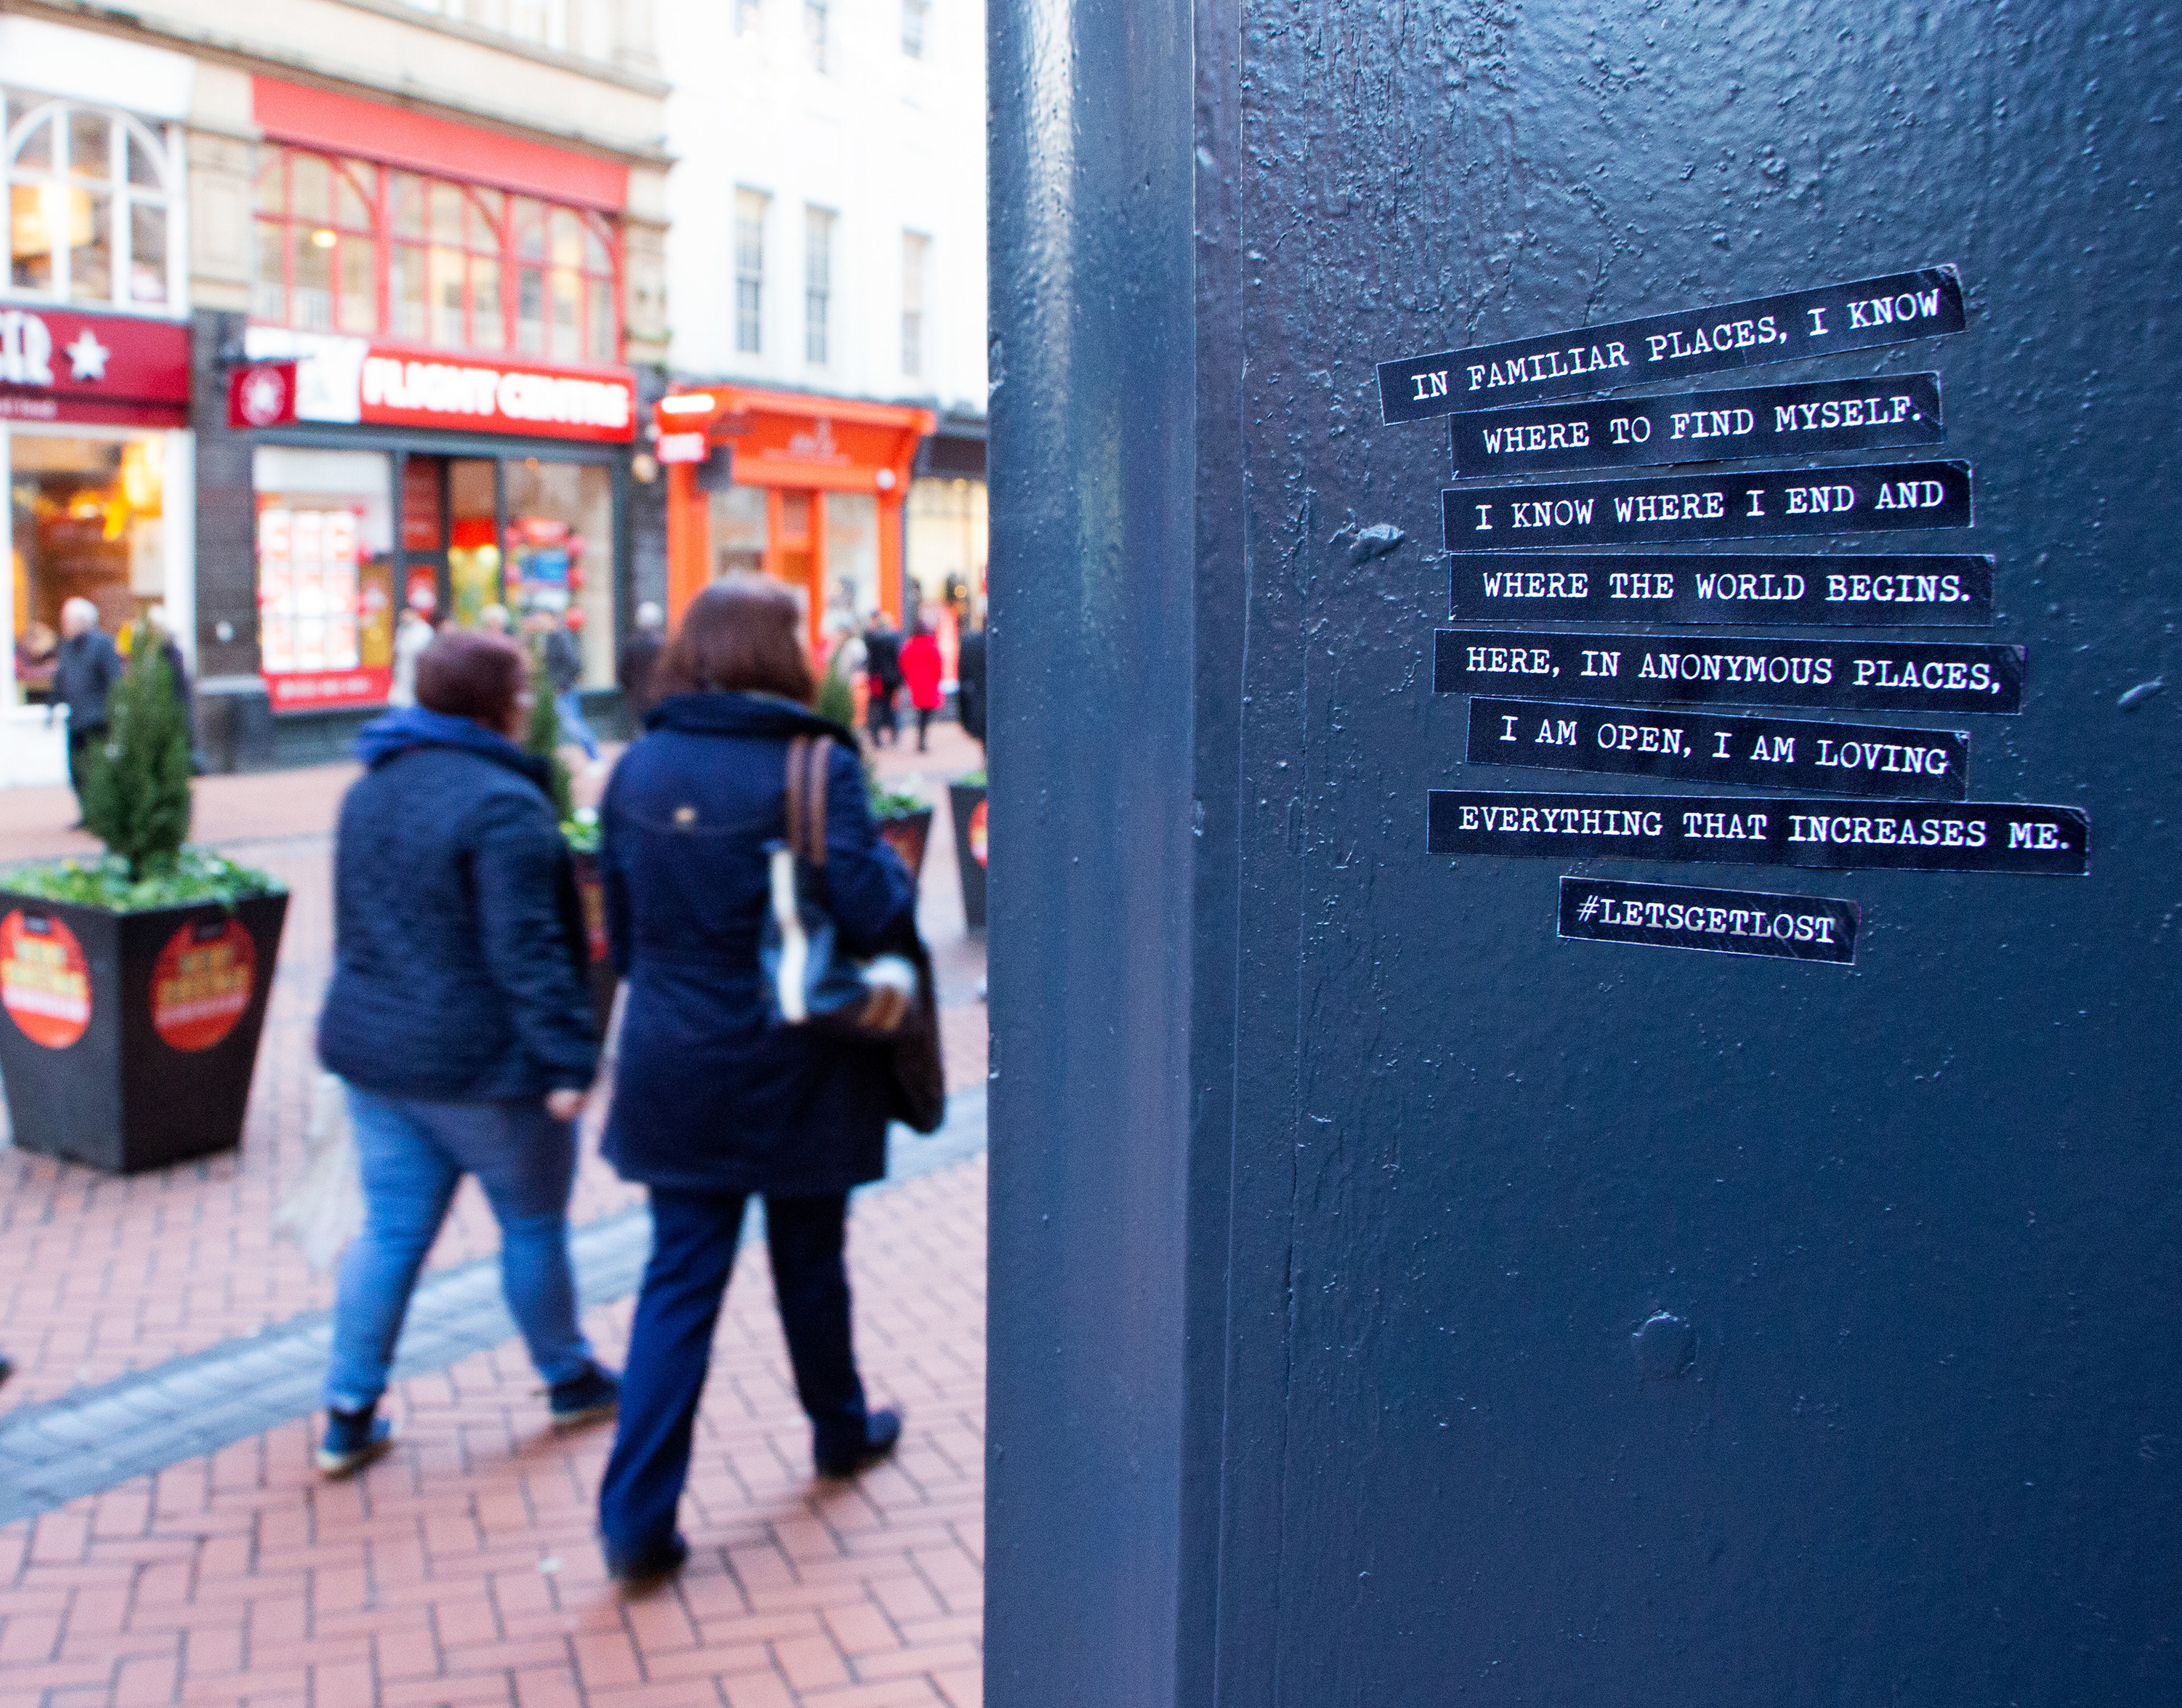 IN FAMILIAR PLACES, I KNOW
WHERE TO FIND MYSELF.
I KNOW WHERE I END AND
WHERE THE WORLD BEGINS.
HERE, IN ANONYMOUS PLACES,
I AM OPEN, I AM LOVING
EVERYTHING THAT INCREASES ME.
#LETSGETLOST
FLIGHT CENTRE